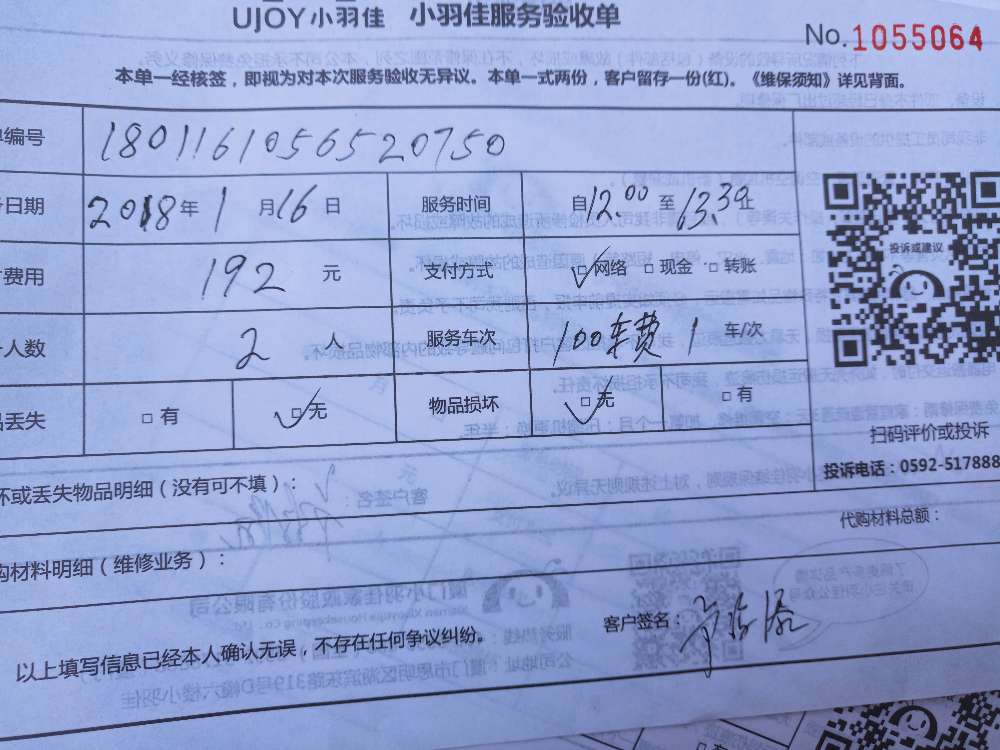 UJOY小羽佳 小羽佳服务验收单
No. 1055064
本单一经核签，即视为对本次服务验收无异议。本单一式两份，客户留存一份(红)。《维保须知》详见背面。
单编号 180116105652075０
日期 2018 年 1 月 16 日 服务时间 自 12:00 至 13:39 止
费用 192 元 支付方式 ☑网络 □现金 □转账
人数 2 人 服务车次 100车费 1 车/次
品丢失 □有 ☑无 物品损坏 ☑无 □有
投诉或建议
扫码评价或投诉
投诉电话：0592-517888
坏或丢失物品明细（没有可不填）：
代购材料总额：
购材料明细（维修业务）：
以上填写信息已经本人确认无误，不存在任何争议纠纷。
客户签名：